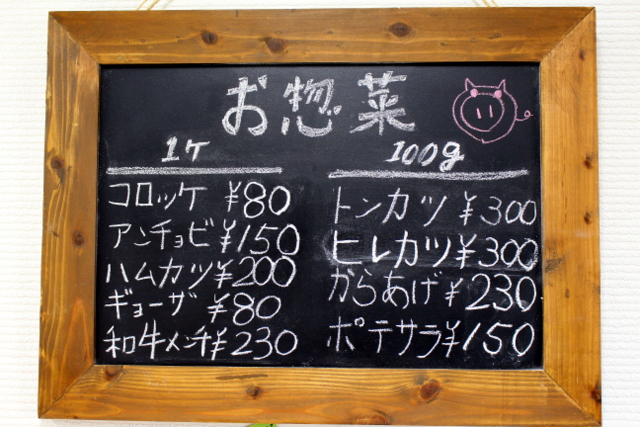 お惣菜
1ケ
コロッケ ¥80
アンチョビ ¥150
ハムカツ ¥200
ギョーザ ¥80
和牛メンチ ¥230
100g
トンカツ ¥300
ヒレカツ ¥300
からあげ ¥230
ポテサラ ¥150